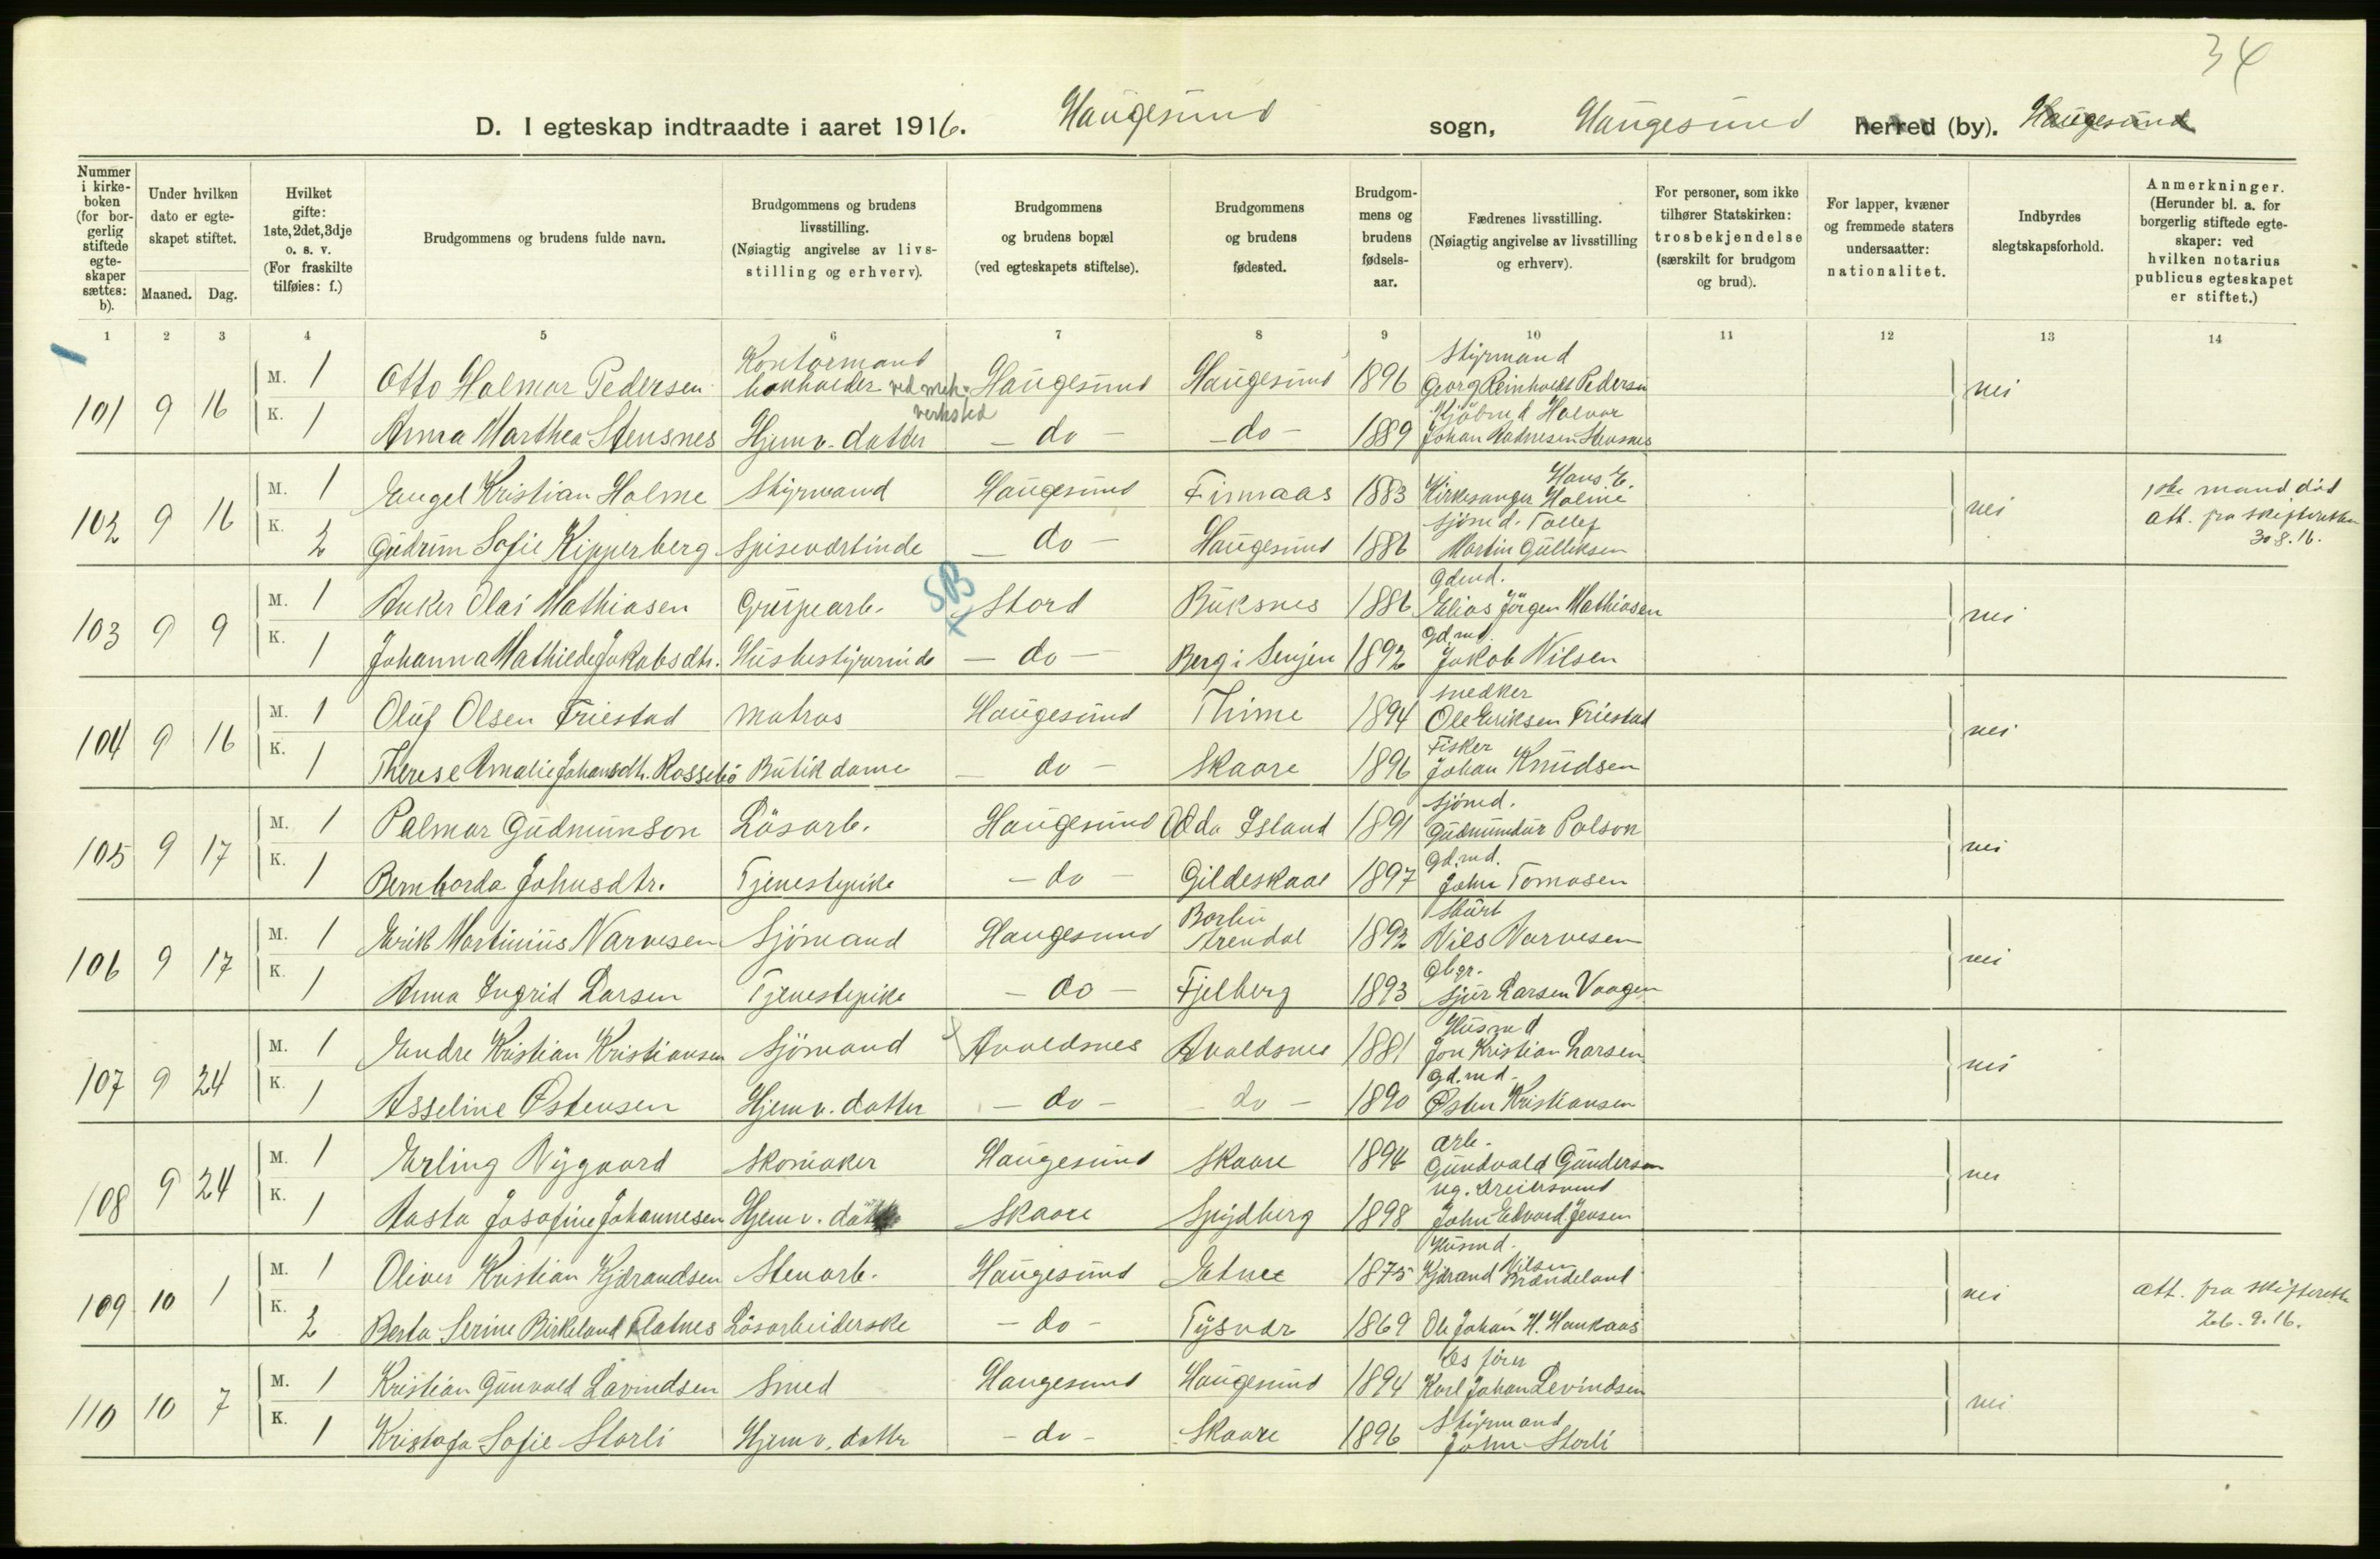 34
D. I egteskap indtraadte i aaret 1916. Haugesund sogn, Haugesund herred (by). Haugesund
Nummer i kirke-boken (for bor-gerlig stiftede egte-skaper sættes: b).
Under hvilken dato er egte-skapet stiftet.
Maaned. Dag.
Hvilket gifte: 1ste, 2det, 3dje o. s. v. (For fraskilte tilføies: f.)
Brudgommens og brudens fulde navn.
Brudgommens og brudens livsstilling. (Nøiagtig angivelse av livs-stilling og erhverv).
Brudgommens og brudens bopæl (ved egteskapets stiftelse).
Brudgommens og brudens fødested.
Brudgom-mens og brudens fødsels-aar.
Fædrenes livsstilling. (Nøiagtig angivelse av livsstilling og erhverv).
For personer, som ikke tilhører Statskirken: trosbekjendelse (særskilt for brudgom og brud).
For lapper, kvæner og fremmede staters undersaatter: nationalitet.
Indbyrdes slegtskapsforhold.
Anmerkninger. (Herunder bl. a. for borgerlig stiftede egte-skaper: ved hvilken notarius publicus egteskapet er stiftet.)
1 2 3 4 5 6 7 8 9 10 11 12 13 14
Kontormand Styrmand
101 9 16 M. 1 Otto Halmar Pedersen bokholder ved mek. verksted Haugesund Haugesund 1896 Georg Reinholdt Pedersen nei
K. 1 Anna Marthea Stensnes Hjemv. datter - do - - do - 1889 Johan Stensnes
102 9 16 M. 1 Engel Kristian Holme Styrmand Haugesund Finnaas 1883 Kirkesanger Hans E. Holme nei 1ste mand död
att. fra skifteretten
30.8.16.
K. 2 Gudrun Sofie Kipperberg Spiseværtinde - do - Haugesund 1886 Sjömd. Tollef Martin Gulliksen
SB
103 9 9 M. 1 Anker Olai Mathiasen Grupearb. Stord Buksnes 1886 Gdmd. Elias Jörgen Mathiasen nei
K. 1 Johanna Mathilde Jakobsdtr. Husbestyrerinde - do - Berg i Senjen 1892 Gd.md. Jakob Nilsen
104 9 16 M. 1 Oluf Olsen Friestad Matros Haugesund Thime 1894 Snedker Ole Eriksen Friestad nei
K. 1 Therese Amalie Johansdtr. Rossebö Butikdame - do - Skaare 1896 Fisker Johan Knudsen
105 9 17 M. 1 Palmar Gudmunson Lösarb. Haugesund Odda Island 1891 Sjömd. Gudmundur Palson nei
K. 1 Bernharda Johnsdtr. Tjenestepike - do - Gildeskaal 1897 Gd.md. John Tomasen
106 9 17 M. 1 Erik Martinius Narvesen Sjömand Haugesund Arendal 1892 Nils Narvesen nei
K. 1 Anna Ingrid Larsen Tjenestepike - do - Fjelberg 1893 Gbgr. Sjur Larsen Vaagen
107 9 24 M. 1 Endre Kristian Kristiansen Sjömand Avaldsnes Avaldsnes 1881 Husmd Jon Kristian Larsen nei
K. 1 Asseline Østensen Hjemv. datter - do - - do - 1890 Gd.md. Østen Kristiansen
108 9 24 M. 1 Erling Nygaard Skomaker Haugesund Skaare 1894 Arb. Gundvald Gundersen nei
K. 1 Aasta Josefine Johannesen Hjemv. datter Skaare Spydberg 1898 John Edvard Jensen
109 10 1 M. 1 Oliver Kristian Kjærandsen Stenarb. Haugesund Etnee 1875 Husmd. Kjærand Nilsen Brændeland nei att. fra skifteretten
26.9.16.
K. 2 Berta Serine Birkeland Flatnes Lösarbeiderske - do - Tysvær 1869 Ole Johan H. Haukaas
110 10 7 M. 1 Kristian Gunvald Lavindsen Smed Haugesund Haugesund 1894 Karl Johan Levindsen nei
K. 1 Kristofa Sofie Storli Hjemv. datter - do - Skaare 1896 Styrmand John Storli